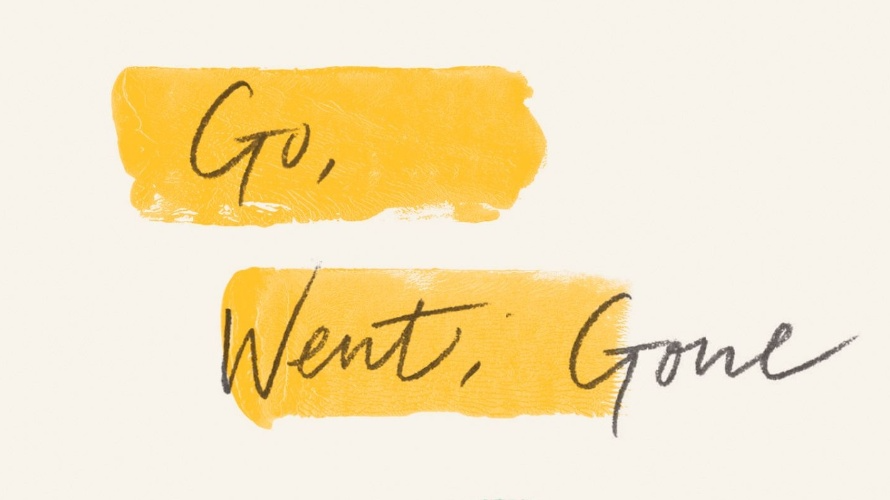 Go,
Went, Gone